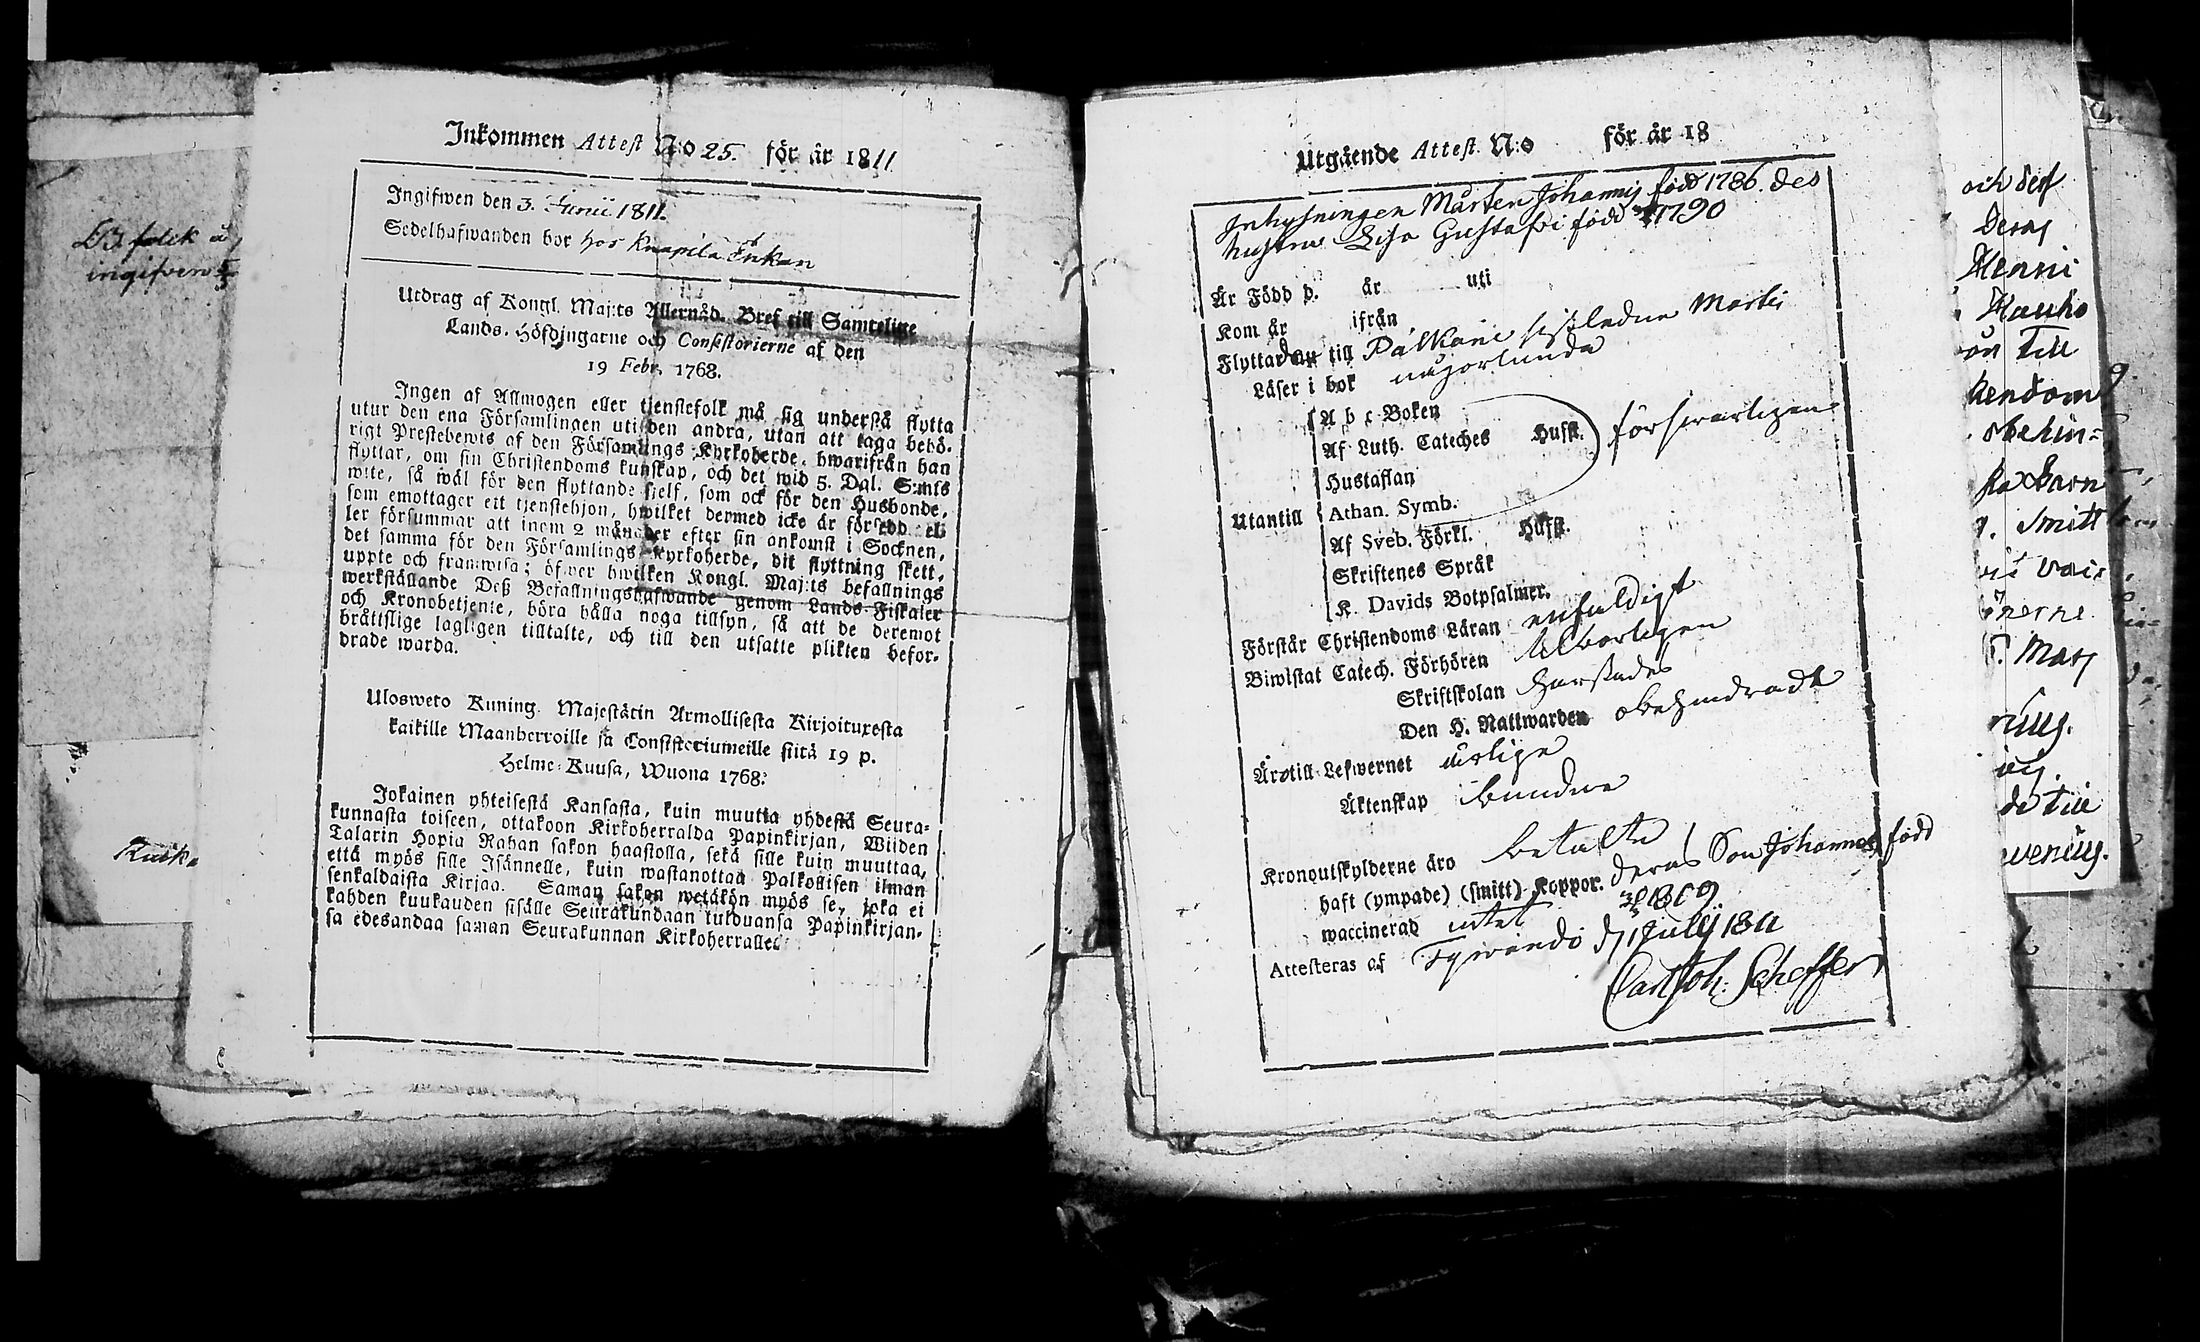 Inkommen Attest N:o 25. för år 1811
Ingifwen den 3. Junii 1811.
Sedelhafwanden bor hos Knapila Enkan
Utdrag af Kongl. Maj:ts Allernåd. Bref till Samtelige
Lands-Höfdingarne och Consistorierne af den
19 Febr. 1768.
Ingen af Allmogen eller tjenstefolk må sig understå flytta
utur den ena Församlingen uti den andra, utan att taga behö-
rigt Prestebewis af den Församlings Kyrkoherde, hwarifrån han
flyttar, om sin Christendoms kunskap, och det wid 5. Dal. S:mts
wite, så wäl för den flyttande sielf, som ock för den Husbonde,
som emottager ett tjenstehjon, hwilket dermed icke är försedd el-
ler försummar att inom 2 månader efter sin ankomst i Socknen,
det samma för den Församlings Kyrkoherde, dit flyttning skett,
uppte och framwisa; öfwer hwilken Kongl. Maj:ts befallnings
werkställande Deß Befallningshafwande genom Lands-Fiskaler
och Kronobetjente, böra hålla noga tillsyn, så att de deremot
bråttslige lagligen tilltalte, och till den utsatte plikten befor-
drade warda.
Ulosweto Kuning. Majestätin Armollisesta Kirjoituxesta
kaikille Maanherroille ja Consistoriumeille siitä 19 p.
Helme-Kuusa, Wuona 1768:
Jokainen yhteisestä Kansasta, kuin muutta yhdestä Seura-
kunnasta toiseen, ottakoon Kirkoherralda Papinkirjan, Wiiden
Talarin Hopia Rahan sakon haastolla, sekä sille kuin muuttaa,
että myös sille Isännelle, kuin wastanottaa Palkollisen ilman
senkaldaista Kirjaa. Saman sakon wetäkön myös se, joka ei
kahden kuukauden sisälle Seurakundaan tulduansa Papinkirjan-
sa edesandaa saman Seurakunnan Kirkoherralle.
Utgående Attest N:o för år 18
Inhysningen Mårten Johannis född 1786. des
hustru Lisa Gustafsdr född 1790
Är Född d. år uti
Kom år ifrån
Flyttar till Pälkäne sistledne Martii
Läser i bok någorlunda
A b c-Boken
Af Luth. Cateches Husfl. försvarligen
Hustaflan
Utantill Athan. Symb.
Af Sveb. Förkl. Husfl.
Skriftenes Språk
K. Davids Botpsalmer.
Förstår Christendoms Läran enfaldigt
Biwistat Catech. Förhören
Skriftskolan
Den H. Nattwarden obehindradt
Äro till Lefwernet ärlige
Äktenskap bundne
Kronoutskylderne äro betalte
haft (ympade) (smitt) Koppor. deras Son Johannes född
1809
waccinerad
Attesteras af Tyrwändö d. 1 July 1811
Carl Joh. Scheffer
ingifven
och des
Deras
Henric
Hauho
Till
kendom
obehin=
Barn
Smitt
nerne
de till